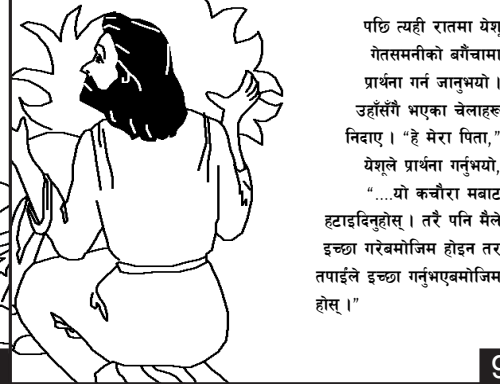 पछि त्यही रातमा येशू
गेतसमनीको बगैंचामा
प्रार्थना गर्न जानुभयो ।
उहाँसँगै भएका चेलाहरू
निदाए । “हे मेरा पिता,”
येशूले प्रार्थना गर्नुभयो,
“....यो कचौरा मबाट
हटाइदिनुहोस् । तरै पनि मैले
इच्छा गरेबमोजिम होइन तर
तपाईंले इच्छा गर्नुभएबमोजिम
होस् ।”